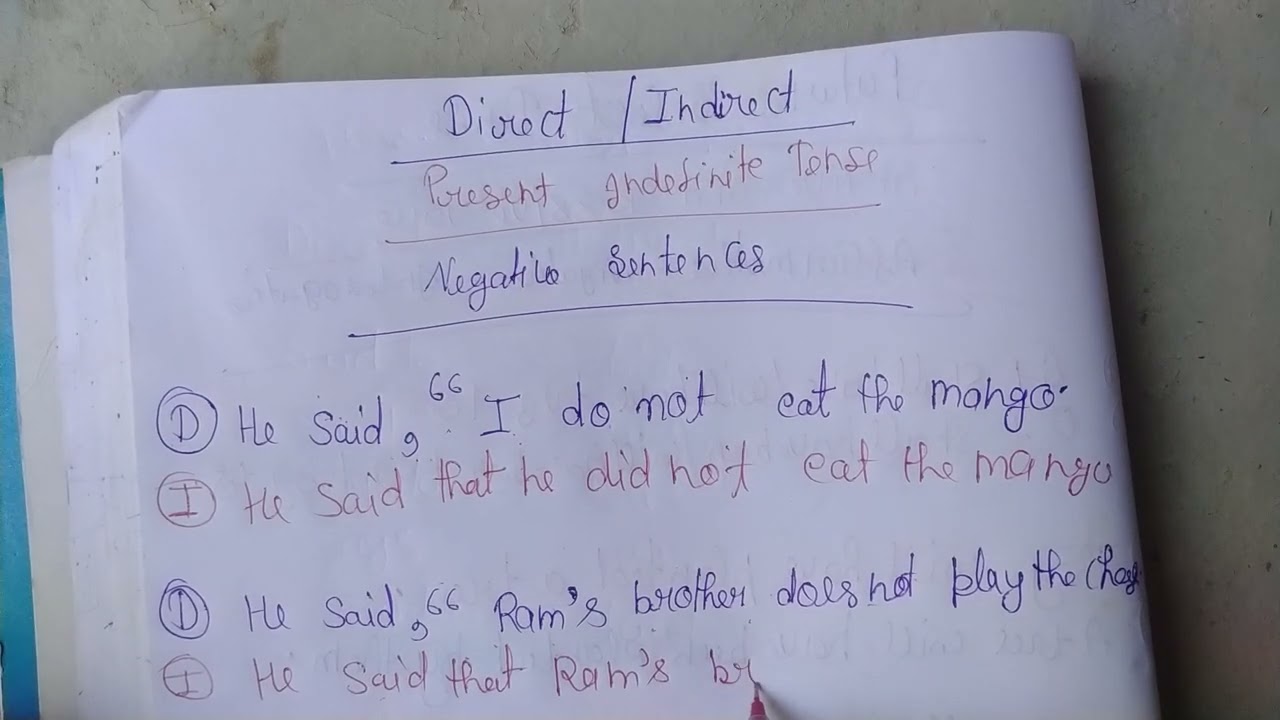 Direct / Indirect
Present Indefinite Tense
Negative Sentences
D He said, “ I do not eat the mango.
I He said that he did not eat the mango
D He said, “ Ram's brother does not play the
I He said that Ram's br